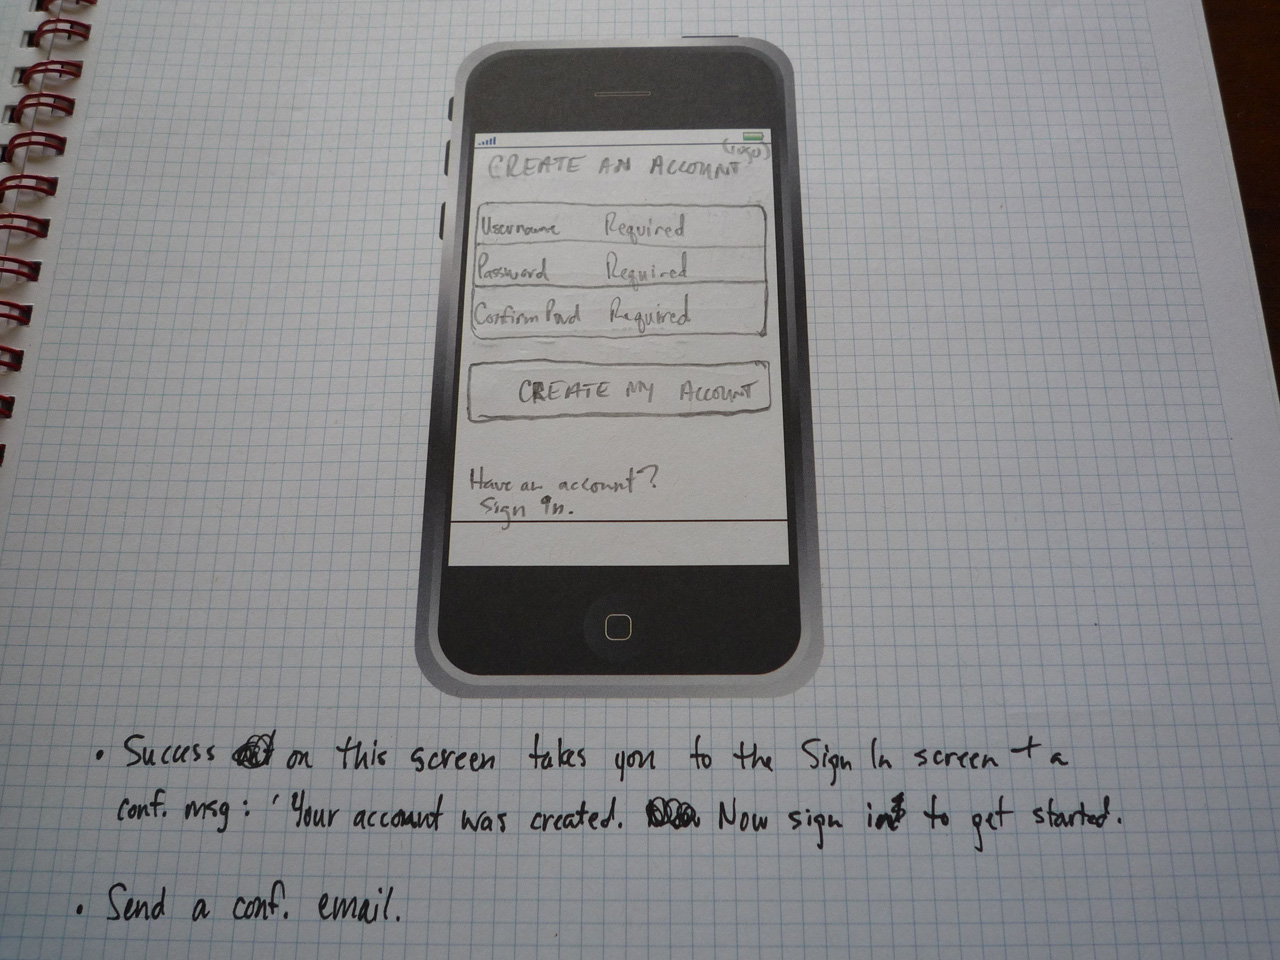 (logo)
CREATE AN ACCOUNT
Username Required
Password Required
Confirm Pwd Required
CREATE MY ACCOUNT
Have an account?
Sign In.
• Success on this screen takes you to the Sign In screen + a
conf. msg: 'Your account was created. Now sign in to get started.
• Send a conf. email.